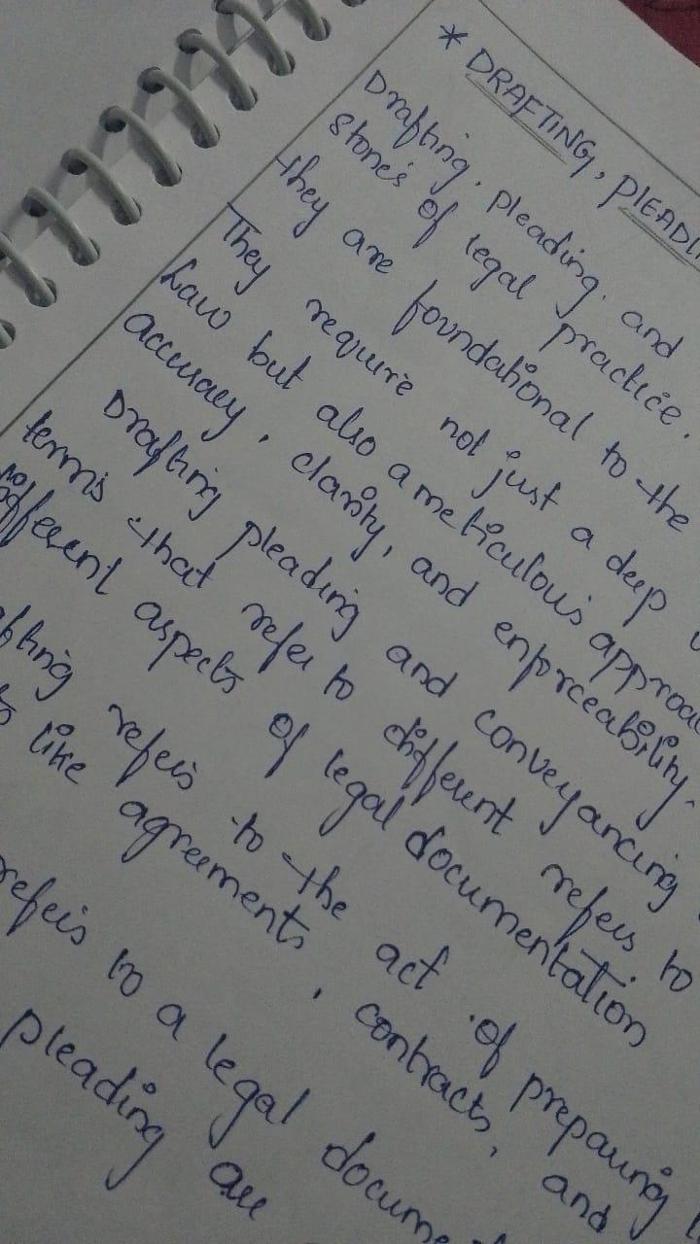 * DRAFTING, PLEADI
Drafting, pleading, and
stone's of legal practice.
they are foundational to the
They require not just a deep
Law but also a meticulous approa
accuracy, clarity, and enforceability.
Drafting pleading and conveyancing
terms that refer to different refers to
different aspects of legal documentation
fting refers to the act of preparing
like agreements, contracts, and
refers to a legal docume
pleading are